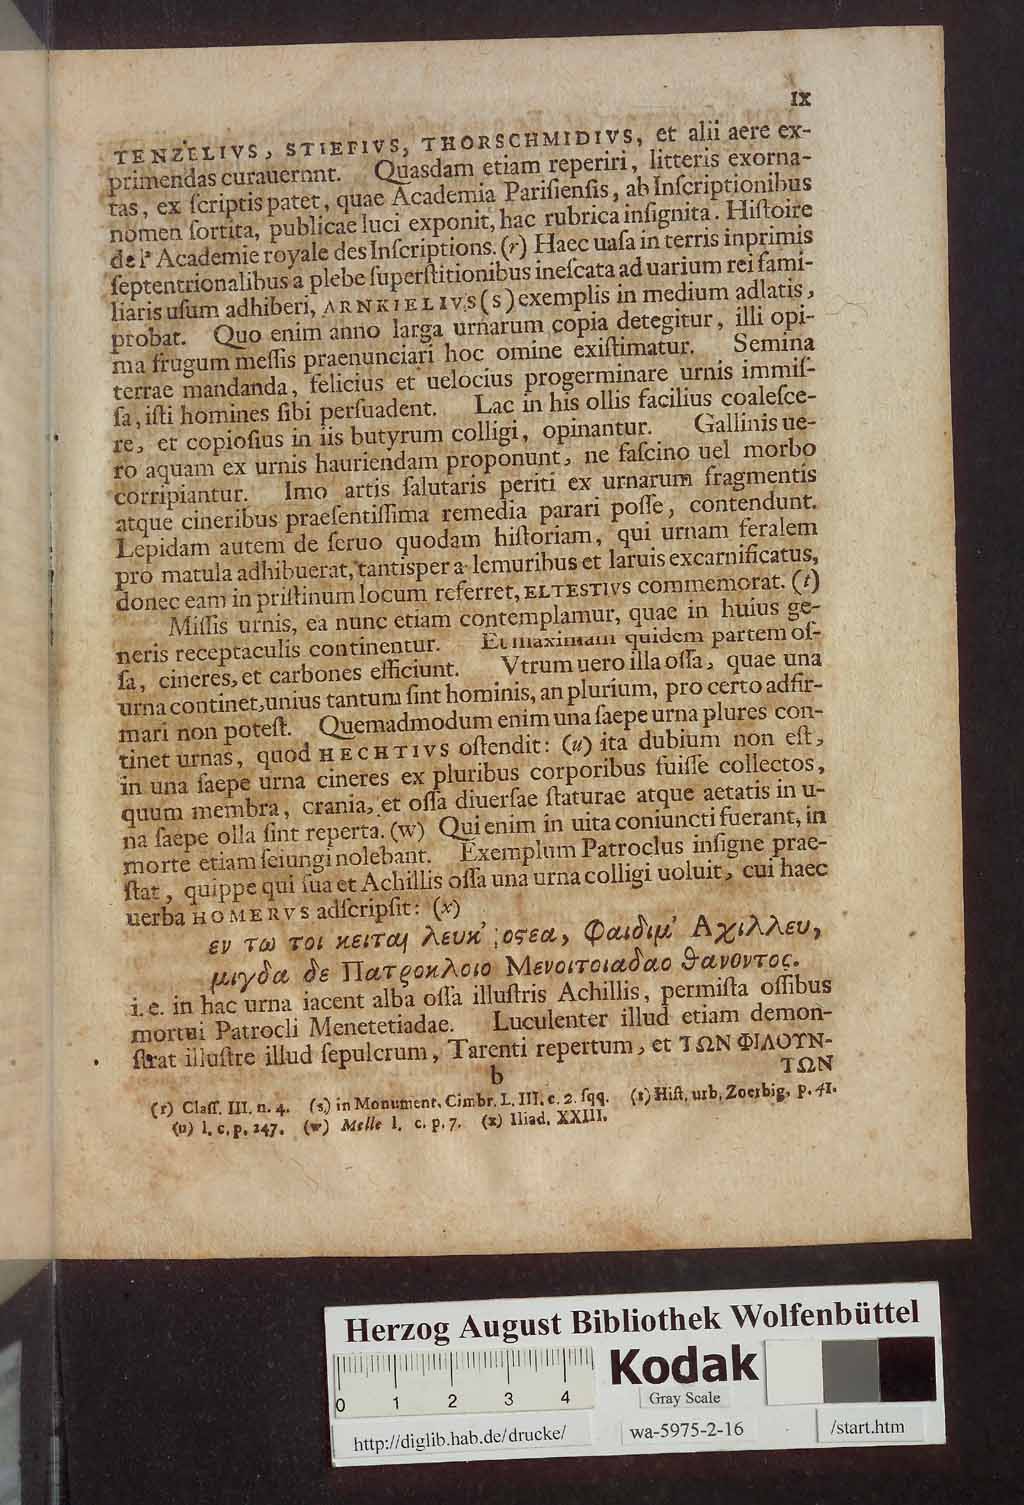 IX
TENZELIVS, STIEFIVS, THORSCHMIDIVS, et alii aere ex-
primendas curauerunt. Quasdam etiam reperiri, litteris exorna-
tas, ex ſcriptis patet, quae Academia Pariſienſis, ab Inſcriptionibus
nomen ſortita, publicae luci exponit, hac rubrica inſignita. Hiſtoire
de l' Academie royale des Inſcriptions. (r) Haec uaſa in terris inprimis
ſeptentrionalibus a plebe ſuperſtitionibus ineſcata ad uarium rei fami-
liaris uſum adhiberi, ARNKIELIVS (s) exemplis in medium adlatis,
probat. Quo enim anno larga urnarum copia detegitur, illi opi-
ma frugum meſſis praenunciari hoc omine exiſtimatur. Semina
terrae mandanda, felicius et uelocius progerminare urnis immiſ-
ſa, iſti homines ſibi perſuadent. Lac in his ollis facilius coaleſce-
re, et copioſius in iis butyrum colligi, opinantur. Gallinis ue-
ro aquam ex urnis hauriendam proponunt, ne faſcino uel morbo
corripiantur. Imo artis ſalutaris periti ex urnarum fragmentis
atque cineribus praeſentiſſima remedia parari poſſe, contendunt.
Lepidam autem de ſeruo quodam hiſtoriam, qui urnam feralem
pro matula adhibuerat, tantisper a lemuribus et laruis excarnificatus,
donec eam in priſtinum locum referret, ELTESTIVS commemorat. (t)
Miſſis urnis, ea nunc etiam contemplamur, quae in huius ge-
neris receptaculis continentur. Et maximam quidem partem oſ-
ſa, cineres, et carbones efficiunt. Vtrum uero illa oſſa, quae una
urna continet, unius tantum ſint hominis, an plurium, pro certo adfir-
mari non poteſt. Quemadmodum enim una ſaepe urna plures con-
tinet urnas, quod HECHTIVS oſtendit: (u) ita dubium non eſt,
in una ſaepe urna cineres ex pluribus corporibus fuiſſe collectos,
quum membra, crania, et oſſa diuerſae ſtaturae atque aetatis in u-
na ſaepe olla ſint reperta. (w) Qui enim in uita coniuncti fuerant, in
morte etiam ſeiungi nolebant. Exemplum Patroclus inſigne prae-
ſtat, quippe qui ſua et Achillis oſſa una urna colligi uoluit, cui haec
uerba HOMERVS adſcripſit: (x)
εν τω τοι κειται λευκ' οϛεα, Φαιδιμ' Αχιλλευ,
μιγδα δε Πατροκλοιο Μενοιτοιαδαο θανοντος.
i. e. in hac urna iacent alba oſſa illuſtris Achillis, permiſta oſſibus
mortui Patrocli Menetetiadae. Luculenter illud etiam demon-
ſtrat illuſtre illud ſepulcrum, Tarenti repertum, et ΤΩΝ ΦΙΛΟΥΝ-
b ΤΩΝ
(r) Claſſ. III. n. 4. (s) in Monument. Cimbr. L. III. c. 2. ſqq. (t) Hiſt. urb. Zoerbig. p. 41.
(u) l. c. p. 247. (w) Melle l. c. p. 7. (x) Iliad. XXIII.
Herzog August Bibliothek Wolfenbüttel
Kodak
Gray Scale
0 1 2 3 4
http://diglib.hab.de/drucke/
wa-5975-2-16
/start.htm